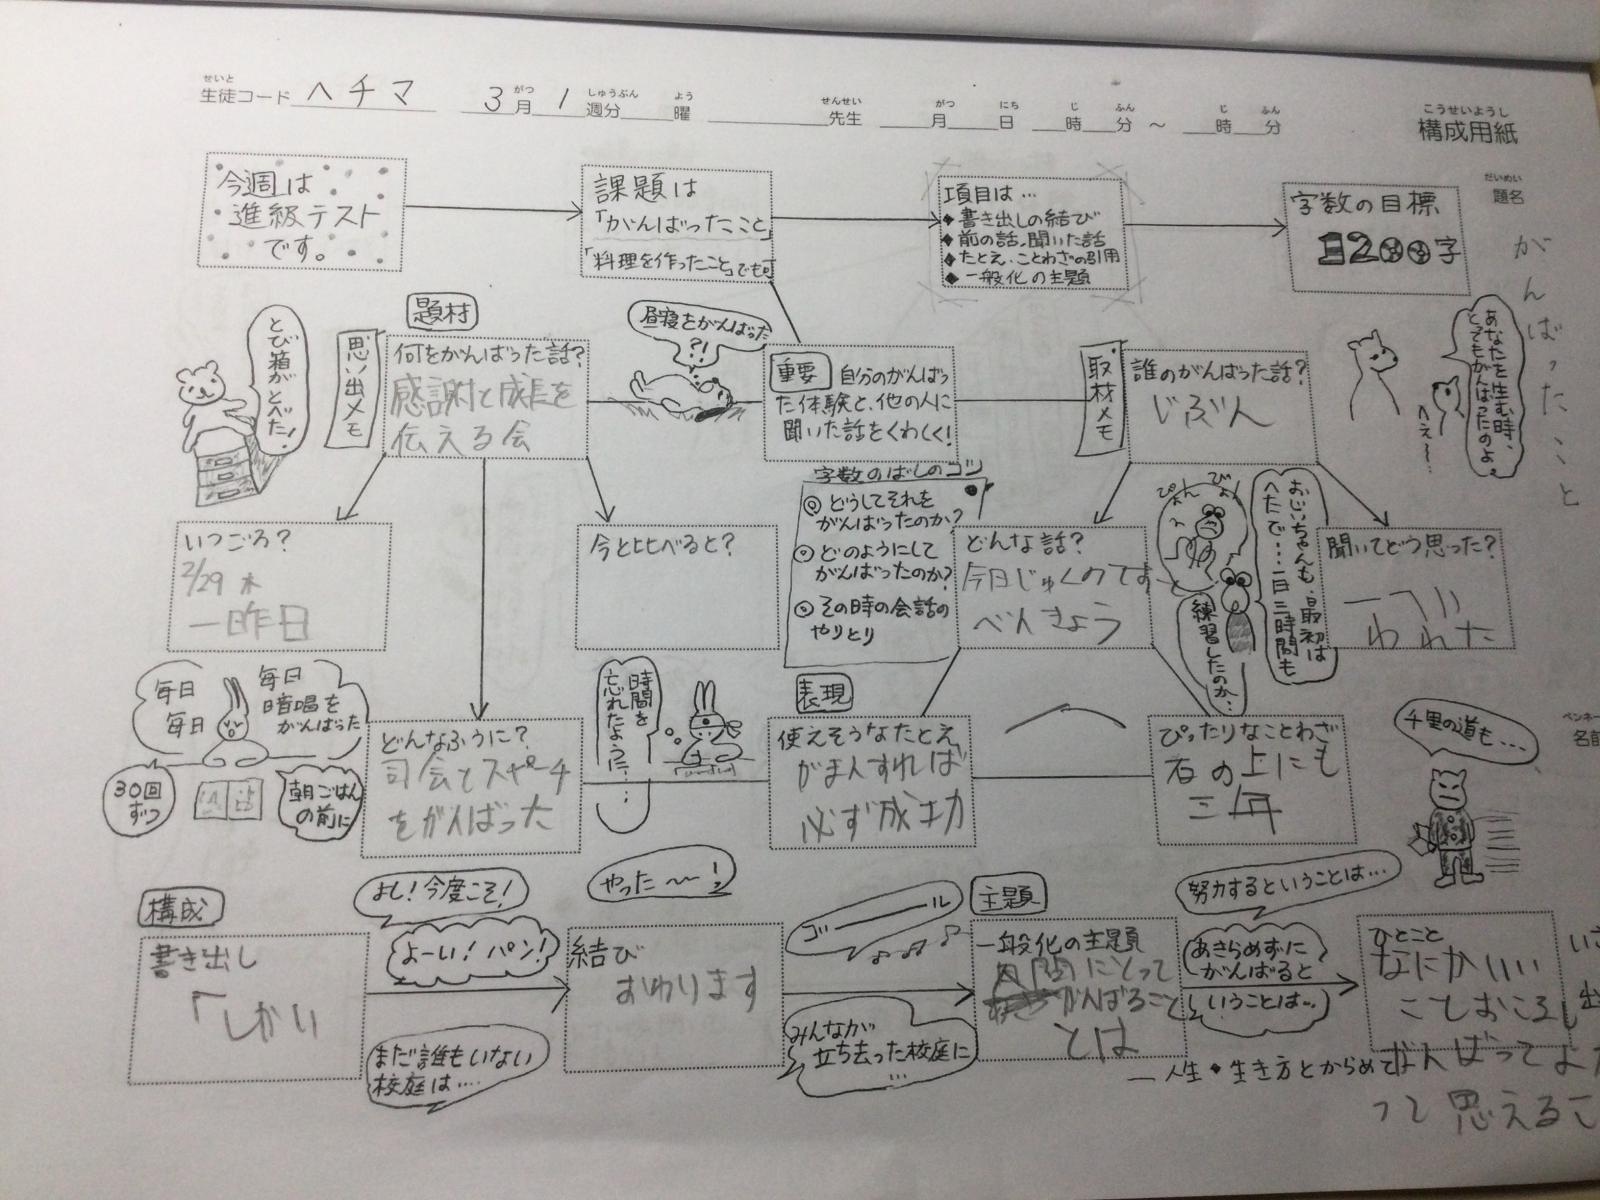 せいと がつ しゅうぶん よう せんせい がつ にち じ ふん じ ふん
生徒コード ヘチマ 3月1週分 曜 先生 月 日 時 分 ～ 時 分
こうせいようし
構成用紙
だいめい
題名
がんばったこと
今週は
進級テスト
です。
課題は
「がんばったこと」
「料理を作ったこと」でも可
項目は…
◆書き出しの結び
◆前の話、聞いた話
◆たとえ・ことわざの引用
◆一般化の主題
字数の目標
1200字
とび箱が
とべた!
思い出メモ
題材
何をがんばった話?
感謝と成長を
伝える会
昼寝をがんばった
?!
重要 自分のがんばっ
た体験と、他の人に
聞いた話をくわしく!
取材メモ
誰のがんばった話?
じぶん
あなたを生む時、
とてもがんばったのよ。
へぇ～…
いつごろ?
2/29 木
一昨日
今と比べると?
字数のばしのコツ
◎どうしてそれを
がんばったのか?
◎どのようにして
がんばったのか?
◎その時の会話の
やりとり
どんな話?
今日じゅくのてす
べんきょう
ぴょん
びょん
おじいちゃんも、最初は
へたで…一日三時間も
練習したのか…
聞いてどう思った?
われた
毎日
毎日
毎日
暗唱を
がんばった
30回
ずつ
朝ごはん
の前に
どんなふうに?
司会とスピーチ
をがんばった
時間を
忘れたように…
表現
使えそうなたとえ
がまんすれば
必ず成功
ぴったりなことわざ
石の上にも
三年
千里の道も…
ペンネー
名前
構成
書き出し
「しかい
よし!今度こそ!
よーい!パン!
まだ誰もいない
校庭は…
やった～～!
結び
おわります
ゴール
みんなが
立ち去った校庭に
…
主題
一般化の主題
人間にとって
がんばること
とは
努力するということは…
あきらめずに
がんばると
いうことは…
ひとこと
なにかいい
ことおころし
がんばってよ
って思えるこ
一人生・生き方とからめて